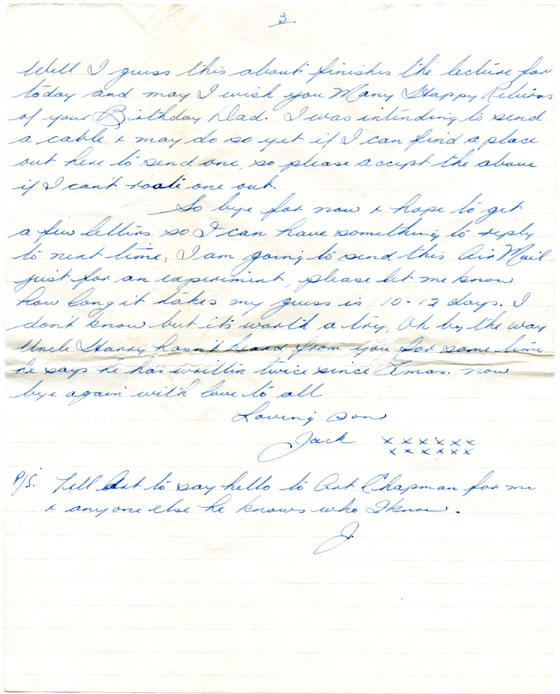 3.
Well I guess this about finishes the lecture for
today and may I wish you Many Happy Returns
of your Birthday Dad. I was intending to send
a cable & may do so yet if I can find a place
out here to send one, so please accept the above
if I can't one out.
So bye for now & hope to get
a few letters so I can have something to reply
to next time, I am going to send this Air Mail
just for an experiment, please let me know
how long it takes my guess is 10-12 days. I
don't know but it's worth a try, Oh by the way
Uncle Harry hasn't heard from you for some time
he says he has written twice since Xmas. now
bye again with love to all
Loving son
Jack xxxxxx
xxxxxx
P/S. Tell Art to say hello to Art Chapman for me
& anyone else he knows who I know.
J.